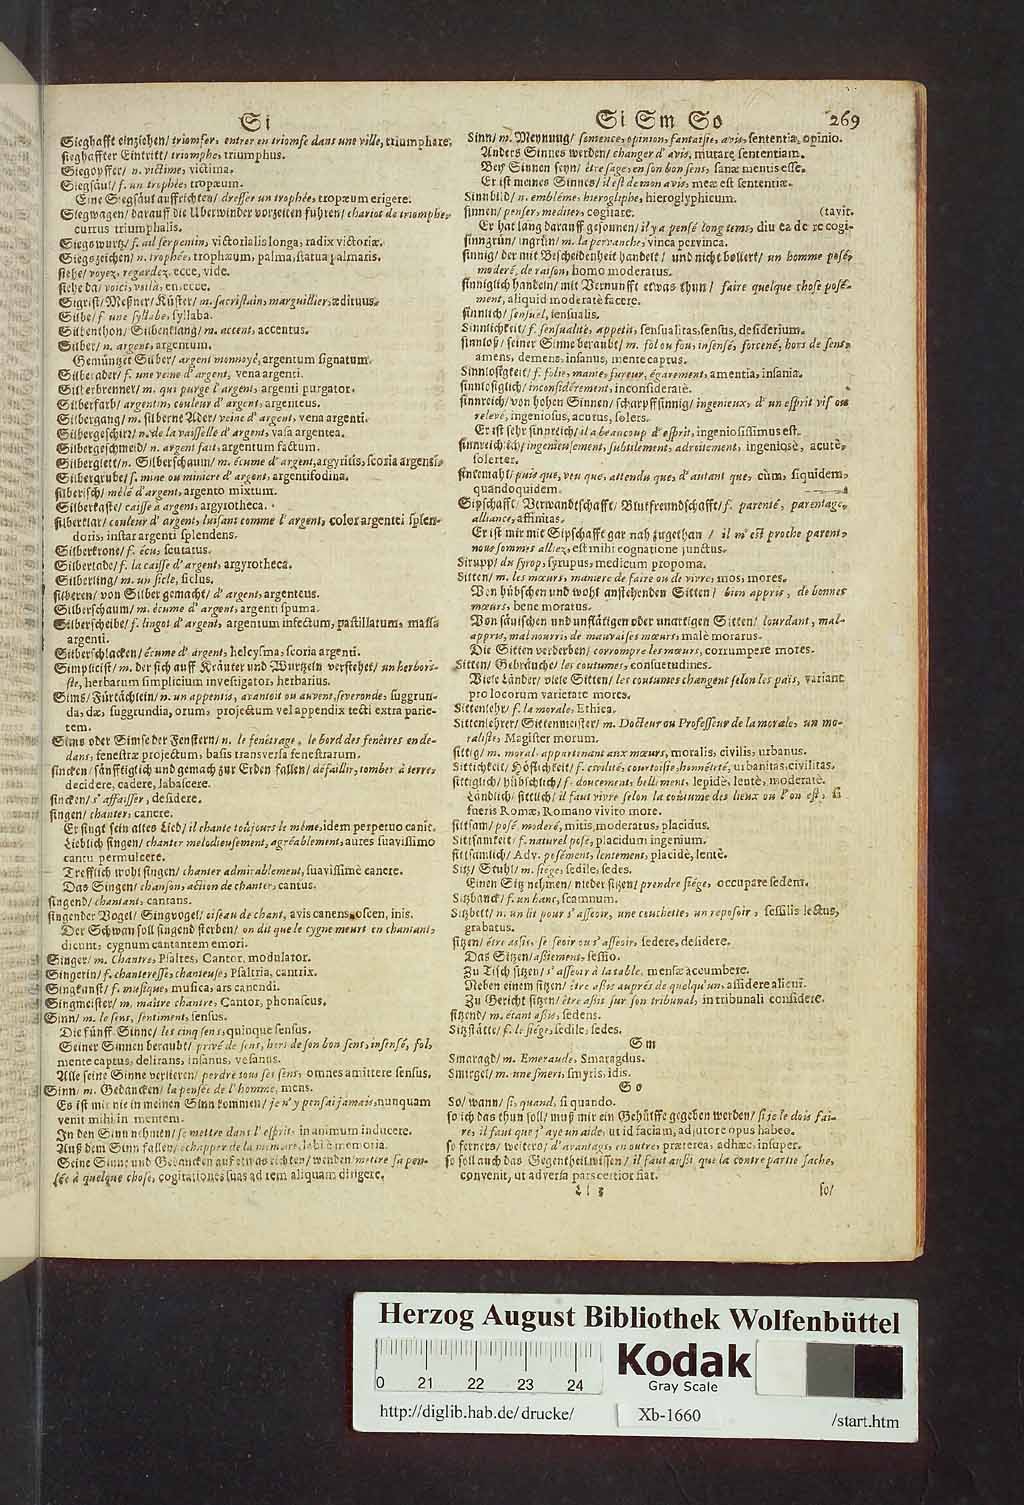 Si
Sieghafft einziehen/ triomfer, entrer en triomfe dans une ville, triumphare,
sieghaffter Eintritt/ triomphe, triumphus.
Siegopffer/ n. victime, victima.
Siegsäul/ f. un trophée, tropæum.
Eine Siegsäul auffrichten/ dresser un trophée, tropæum erigere.
Siegwagen/ darauff die Überwinder vorzeiten fuhren/ chariot de triomphe,
currus triumphalis.
Siegswurtz/ f. ail serpentin, victorialis longa, radix victoriæ.
Siegszeichen/ n. trophée, trophæum, palma, statua palmaris.
siehe/ voyez, regardez, ecce, vide.
siehe da/ voici, voilà, en, ecce.
Sigrist/ Meßner/ Küster/ m. sacristain, marguillier, ædituus.
Silbe/ f. une syllabe, syllaba.
Silbenthon/ Silbenklang/ m. accent, accentus.
Silber/ n. argent, argentum.
Gemüntzet Silber/ argent monnoyé, argentum signatum.
Silberader/ f. une veine d' argent, vena argenti.
Silberbrenner/ m. qui purge l' argent, argenti purgator.
Silberfarb/ argentin, couleur d' argent, argenteus.
Silbergang/ m. silberne Ader/ veine d' argent, vena argenti.
Silbergeschirr/ n. de la vaisselle d' argent, vasa argentea.
Silbergeschmeid/ n. argent fait, argentum factum.
Silberglett/ n. Silberschaum/ m. écume d' argent, argyritis, scoria argensi.
Silbergrube/ f. mine ou miniere d' argent, argentifodina.
silberisch/ mêlé d' argent, argento mixtum.
Silberkaste/ caisse à argent, argyrotheca.
silberklar/ couleur d' argent, luisant comme l' argent, color argentei splen-
doris, instar argenti splendens.
Silberkrone/ f. écu, scutatus.
Silberlade/ f. la caisse d' argent, argyrotheca.
Silberling/ m. un sicle, siclus.
silberen/ von Silber gemacht/ d' argent, argenteus.
Silberschaum/ m. écume d' argent, argenti spuma.
Silberscheibe/ f. lingot d' argent, argentum infectum, pastillatum, massa
argenti.
Silberschlacken/ écume d' argent, helcysma, scoria argenti.
Simplicist/ m. der sich auff Kräuter und Wurtzeln verstehet/ un herbori-
ste, herbarum simplicium investigator, herbarius.
Sims/ Fürtächlein/ n. un appentis, avantoit ou auvent, severonde, suggrun-
da, dæ, suggrundia, orum, projectum vel appendix tecti extra parie-
tem.
Sims oder Simse der Fenstern/ n. le fenêtrage, le bord des fenêtres en de-
dans, fenestræ projectum, basis transversa fenestrarum.
sincken/ sänfftiglich und gemach zur Erden fallen/ défaillir, tomber à terre,
decidere, cadere, labascere.
sincken/ s' affaisser, desidere.
singen/ chanter, canere.
Er singt sein altes Lied/ il chante toûjours le même, idem perpetuo canit.
Lieblich singen/ chanter melodieusement, agréablement, aures suavissimo
cantu permulcere.
Trefflich wohl singen/ chanter admirablement, suavissimè canere.
Das Singen/ chanson, action de chanter, cantus.
singend/ chantant, cantans.
singender Vogel/ Singvogel/ oiseau de chant, avis canens, oscen, inis.
Der Schwan soll singend sterben/ on dit que le cygne meurt en chantant,
dicunt, cygnum cantantem emori.
Singer/ m. Chantre, Psaltes, Cantor, modulator.
Singerin/ f. chanteresse, chanteuse, Psaltria, cantrix.
Singkunst/ f. musique, musica, ars canendi.
Singmeister/ m. maître chantre, Cantor, phonascus.
Sinn/ m. le sens, sentiment, sensus.
Die fünff Sinne/ les cinq sens, quinque sensus.
Seiner Sinnen beraubt/ privé de sens, hors de son bon sens, insensé, fol,
mente captus, delirans, insanus, vesanus.
Alle seine Sinne verlieren/ perdre tous ses sens, omnes amittere sensus.
Sinn/ m. Gedancken/ la pensée de l' homme, mens.
Es ist mir nie in meinen Sinn kommen/ je n' y pensai jamais, nunquam
venit mihi in mentem.
In den Sinn nehmen/ se mettre dans l' esprit, in animum inducere.
Auß dem Sinn fallen/ échapper de la memoire, labi è memoria.
Seine Sinne und Gedancken auf etwas richten/ wenden/ mettre sa pen-
sée à quelque chose, cogitationes suas ad rem aliquam dirigere.
Si Sm So 269
Sinn/ m. Meynung/ sentence, opinion, fantasie, avis, sententia, opinio.
Anders Sinnes werden/ changer d' avis, mutare sententiam.
Bey Sinnen seyn/ être sage, en son bon sens, sanæ mentis esse.
Er ist meines Sinnes/ il est de mon avis, meæ est sententiæ.
Sinnbild/ n. emblème, hieroglyphe, hieroglyphicum.
sinnen/ penser, mediter, cogitare. (tavit.
Er hat lang darauff gesonnen/ il y a pensé long tems, diu ea de re cogi-
sinngrün/ ingrün/ m. la pervanche, vinca pervinca.
sinnig/ der mit Bescheidenheit handelt/ und nicht boltert/ un homme posé,
moderé, de raison, homo moderatus.
sinniglich handeln/ mit Vernunfft etwas thun/ faire quelque chose posé-
ment, aliquid moderatè facere.
sinnlich/ sensuel, sensualis.
Sinnlichkeit/ f. sensualité, appetit, sensualitas, sensus, desiderium.
sinnloß/ seiner Sinne beraubt/ m. fol ou fou, insensé, forcené, hors de sens,
amens, demens, insanus, mente captus.
Sinnlosigkeit/ f. folie, manie, fureur, égarement, amentia, insania.
sinnlosiglich/ inconsidérement, inconsideratè.
sinnreich/ von hohen Sinnen/ scharpffsinnig/ ingenieux, d' un esprit vif ou
relevé, ingeniosus, acutus, solers.
Er ist sehr sinnreich/ il a beaucoup d' esprit, ingeniosissimus est.
sinnreichlich/ ingenieusement, subtilement, adroitement, ingeniosè, acutè,
solerter.
sintemahl/ puis que, veu que, attendu que, d' autant que, cùm, siquidem,
quandoquidem.
Sipschafft/ Verwandtschafft/ Blutfreundschafft/ f. parenté, parentage,
alliance, affinitas.
Er ist mir mit Sipschafft gar nah zugethan/ il m' est proche parent,
nous sommes alliez, est mihi cognatione junctus.
Sirupp/ du syrop, syrupus, medicum propoma.
Sitten/ m. les mœurs, maniere de faire ou de vivre, mos, mores.
Von hübschen und wohl anstehenden Sitten/ bien appris, de bonnes
mœurs, bene moratus.
Von säuischen und unflätigen oder unartigen Sitten/ lourdant, mal-
appris, mal nourri, de mauvaises mœurs, malè moratus.
Die Sitten verderben/ corrompre les mœurs, corrumpere mores.
Sitten/ Gebräuche/ les coutumes, consuetudines.
Viele Länder/ viele Sitten/ les coutumes changent selon les pais, variant
pro locorum varietate mores.
Sittenlehr/ f. la morale, Ethica.
Sittenlehrer/ Sittenmeister/ m. Docteur ou Professeur de la morale, un mo-
raliste, Magister morum.
sittig/ m. moral, appartenant aux mœurs, moralis, civilis, urbanus.
Sittichkeit/ Höflichkeit/ f. civilité, courtoisie, honnêteté, urbanitas, civilitas.
sittiglich/ hübschlich/ f. doucement, bellement, lepidè, lentè, moderatè.
Ländlich/ sittlich/ il faut vivre selon la coûtume des lieux ou l' on est, si
fueris Romæ, Romano vivito more.
sittsam/ posé, moderé, mitis, moderatus, placidus.
Sittsamkeit/ f. naturel posé, placidum ingenium.
sittsamlich/ Adv. posément, lentement, placidè, lentè.
Sitz/ Stuhl/ m. siége, sedile, sedes.
Einen Sitz nehmen/ nieder sitzen/ prendre siége, occupare sedem.
Sitzbanck/ f. un banc, scamnum.
Sitzbett/ n. un lit pour s' asseoir, une couchette, un reposoir, sessilis lectus,
grabatus.
sitzen/ être assis, se seoir ou s' asseoir, sedere, desidere.
Das Sitzen/ assiement, sessio.
Zu Tisch sitzen/ s' asseoir à la table, mensæ accumbere.
Neben einem sitzen/ être assis auprés de quelqu' un, assidere alicui.
Zu Gericht sitzen/ être assis sur son tribunal, in tribunali considere.
sitzend/ m. étant assis, sedens.
Sitzstätte/ f. le siége, sedile, sedes.
Sm
Smaragd/ m. Emeraude, Smaragdus.
Smirgel/ m. une smeri, smyris, idis.
So
So/ wann/ si, quand, si quando.
so ich das thun soll/ muß mir ein Gehülffe gegeben werden/ si je le dois fai-
re, il faut que j' aye un aide, ut id faciam, adjutore opus habeo.
so ferners/ weiters/ d' avantage, en outre, præterea, adhæc, insuper.
so soll auch das Gegentheil wissen/ il faut aussi que la contre partie sache,
convenit, ut adversa pars certior fiat.
Ll 3 so/
Herzog August Bibliothek Wolfenbüttel
Kodak
Gray Scale
0 21 22 23 24
http://diglib.hab.de/drucke/ Xb-1660 /start.htm